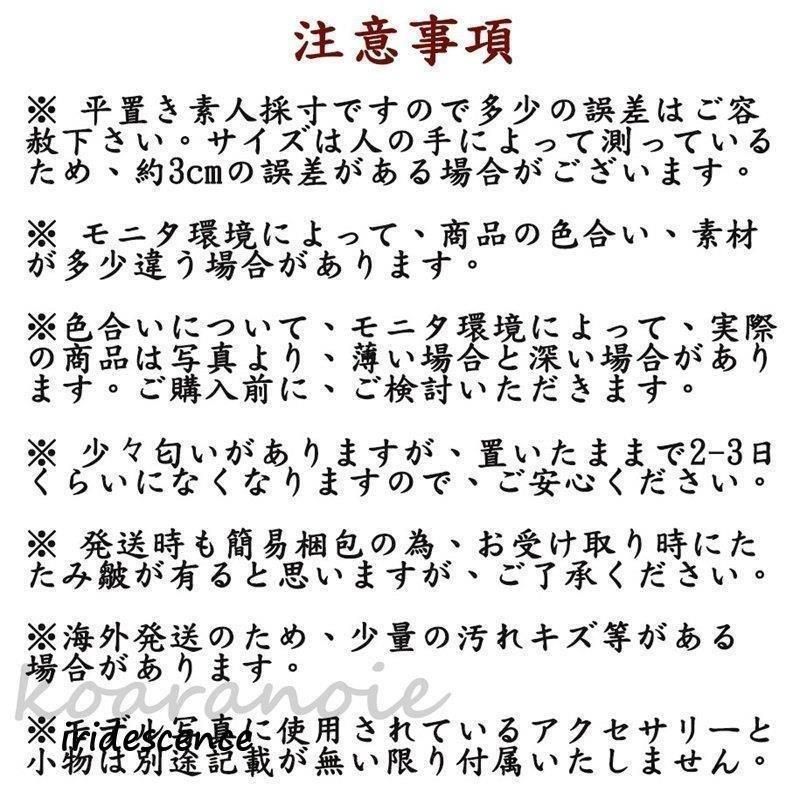 注意事項
※ 平置き素人採寸ですので多少の誤差はご容
赦下さい。サイズは人の手によって測っている
ため、約3cmの誤差がある場合がございます。
※ モニタ環境によって、商品の色合い、素材
が多少違う場合があります。
※色合いについて、モニタ環境によって、実際
の商品は写真より、薄い場合と深い場合があり
ます。ご購入前に、ご検討いただきます。
※ 少々匂いがありますが、置いたままで2-3日
くらいになくなりますので、ご安心ください。
※ 発送時も簡易梱包の為、お受け取り時にた
たみ皺が有ると思いますが、ご了承ください。
※海外発送のため、少量の汚れキズ等がある
場合があります。
koaranoie
※ 写真に使用されているアクセサリーと
iridescence
小物は別途記載が無い限り付属いたしません。